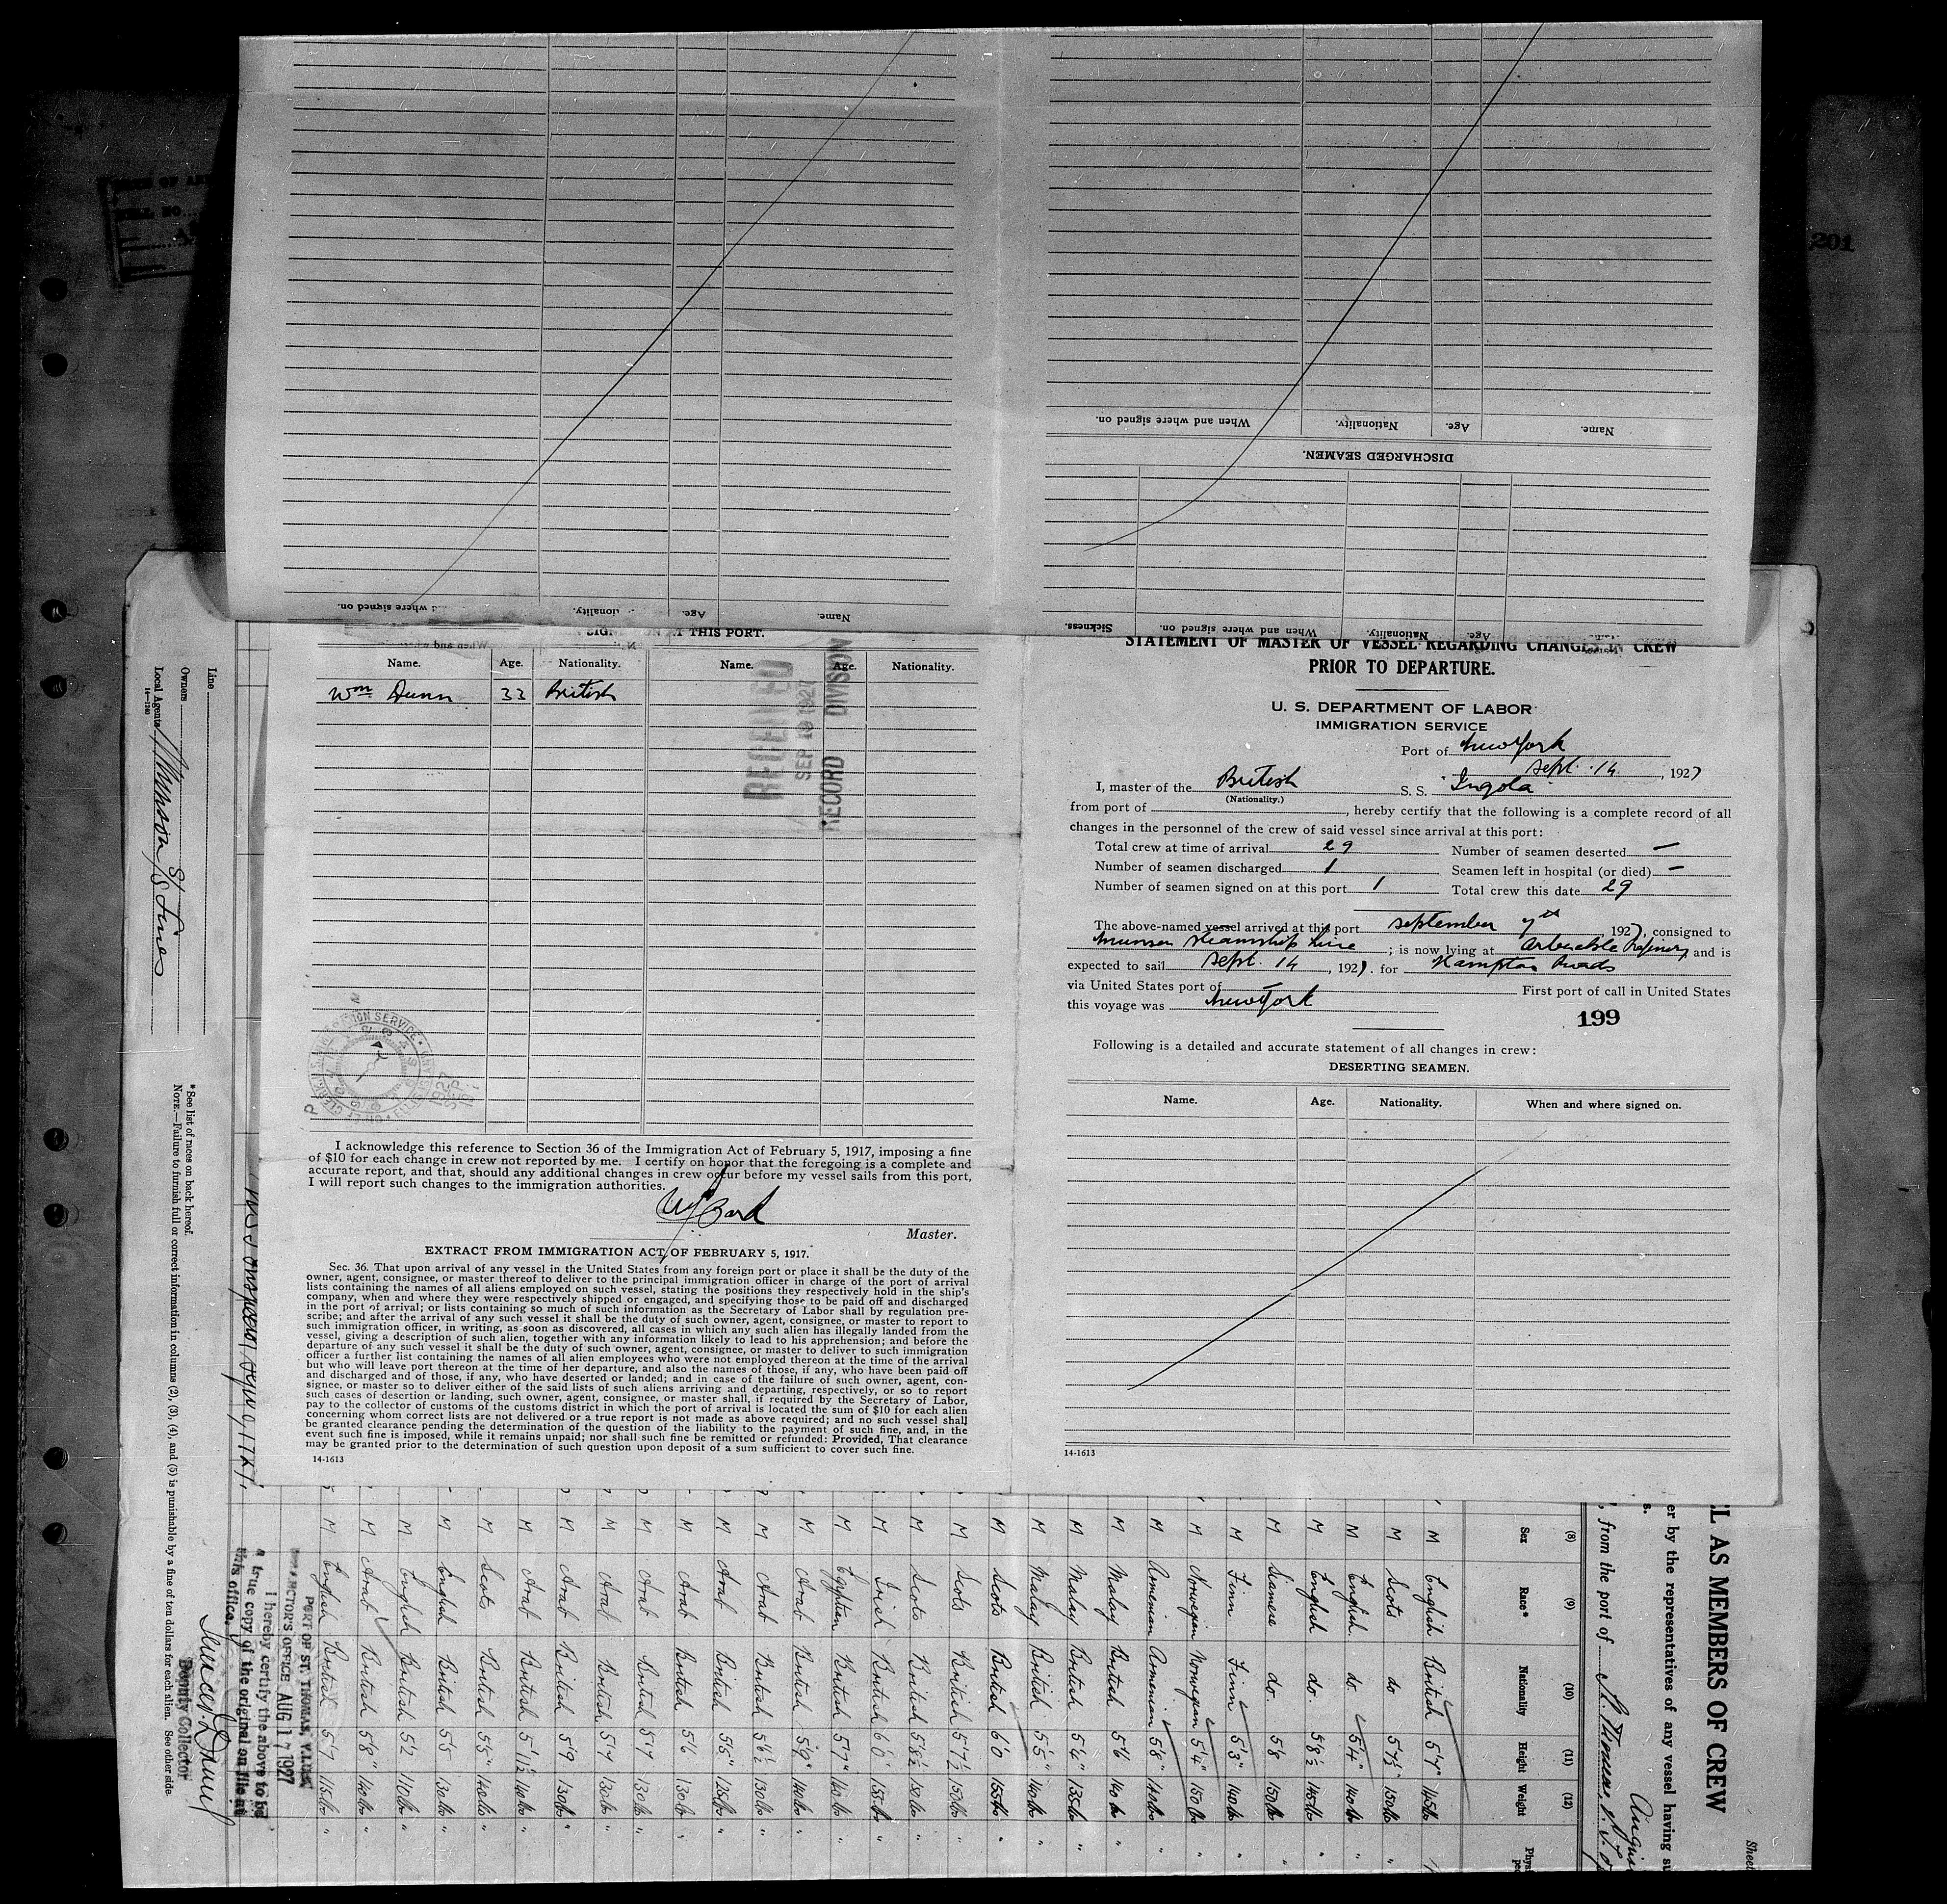 When and where signed on.
Nationality.
Age.
Name.
DISCHARGED SEAMEN.
Name.
Age.
Nationality.
When and where signed on.
Sickness.
Name.
Age.
Nationality.
When and where signed on.
201
THIS PORT.
Name. Age. Nationality. Name. Age. Nationality.
Wm. Dunn 33 British
RECEIVED
SEP 19 1927
RECORD DIVISION
I acknowledge this reference to Section 36 of the Immigration Act of February 5, 1917, imposing a fine
of $10 for each change in crew not reported by me. I certify on honor that the foregoing is a complete and
accurate report, and that, should any additional changes in crew occur before my vessel sails from this port,
I will report such changes to the immigration authorities.
Master.
EXTRACT FROM IMMIGRATION ACT OF FEBRUARY 5, 1917.
Sec. 36. That upon arrival of any vessel in the United States from any foreign port or place it shall be the duty of the
owner, agent, consignee, or master thereof to deliver to the principal immigration officer in charge of the port of arrival
lists containing the names of all aliens employed on such vessel, stating the positions they respectively hold in the ship's
company, when and where they were respectively shipped or engaged, and specifying those to be paid off and discharged
in the port of arrival; or lists containing so much of such information as the Secretary of Labor shall by regulation pre-
scribe; and after the arrival of any such vessel it shall be the duty of such owner, agent, consignee, or master to report to
such immigration officer, in writing, as soon as discovered, all cases in which any such alien has illegally landed from the
vessel, giving a description of such alien, together with any information likely to lead to his apprehension; and before the
departure of any such vessel it shall be the duty of such owner, agent, consignee, or master to deliver to such immigration
officer a further list containing the names of all alien employees who were not employed thereon at the time of the arrival
but who will leave port thereon at the time of her departure, and also the names of those, if any, who have been paid off
and discharged and of those, if any, who have deserted or landed; and in case of the failure of such owner, agent, con-
signee, or master so to deliver either of the said lists of such aliens arriving and departing, respectively, or so to report
such cases of desertion or landing, such owner, agent, consignee, or master shall, if required by the Secretary of Labor,
pay to the collector of customs of the customs district in which the port of arrival is located the sum of $10 for each alien
concerning whom correct lists are not delivered or a true report is not made as above required; and no such vessel shall
be granted clearance pending the determination of the question of the liability to the payment of such fine, and, in the
event such fine is imposed, while it remains unpaid; nor shall such fine be remitted or refunded: Provided, That clearance
may be granted prior to the determination of such question upon deposit of a sum sufficient to cover such fine.
14-1613
STATEMENT OF MASTER OF VESSEL REGARDING CHANGES IN CREW
PRIOR TO DEPARTURE.
U. S. DEPARTMENT OF LABOR
IMMIGRATION SERVICE
Port of New York
Sept. 14, 1927
I, master of the British S. S. "Ingola"
(Nationality.)
from port of , hereby certify that the following is a complete record of all
changes in the personnel of the crew of said vessel since arrival at this port:
Total crew at time of arrival 29 Number of seamen deserted —
Number of seamen discharged 1 Seamen left in hospital (or died) —
Number of seamen signed on at this port 1 Total crew this date 29
The above-named vessel arrived at this port September 7th 1927, consigned to
Munson Steamship Line ; is now lying at Arbuckle Refinery and is
expected to sail Sept. 14, 1927. for Hampton Roads
via United States port of — First port of call in United States
this voyage was New York
199
Following is a detailed and accurate statement of all changes in crew:
DESERTING SEAMEN.
Name. Age. Nationality. When and where signed on.
14-1613
Line
Owners
Local Agents Munson SS Lines
14-1240
*See list of races on back hereof.
NOTE.—Failure to furnish full or correct information in columns (2), (3), (4), and (5) is punishable by a fine of ten dollars for each alien. See other side.
L AS MEMBERS OF CREW
Sheet
er by the representatives of any vessel having su
, from the port of St Thomas, V.I. of
(8) (9) (10) (11) (12)
Sex Race* Nationality Height Weight
M English British 5'7" 145lb
M Scots do 5'7½" 150lb
M English do 5'4" 140lb
M English do. 5'8½ 145lb
M Siamese do. 5'8 150lb
M Finn Finn 5'3" 140lb
M Norwegian Norwegian 5'4" 150lb
M Armenian Armenian 5'8" 140lb
M Malay British 5'6 140lb
M Malay British 5'6" 135lb
M Malay British 5'5" 140lb
M Scots British 6'0 155lb
M Scots British 5'7½ 150lb
M Scots British 5'8½ 150lb
M Irish British 6'0" 155lb
M Egyptian British 5'7" 140lb
M Arab British 5'9" 140lb
M Arab British 5'6½ 130lb
M Arab British 5'5" 125lb
M Arab British 5'6 130lb
M Arab British 5'7 130lb
M Arab British 5'7 130lb
M Arab British 5'9 130lb
M Arab British 5'11½ 140lb
M Scots British 5'5" 140lb
M English British 5'5 130lb
M English British 5'2 110lb
M Arab British 5'8" 140lb
M English British 5'7 115lb
PORT OF ST. THOMAS, V.I.USA
AUG 17 1927
I hereby certify the above to be
a true copy of the original on file at
this office.
Deputy Collector